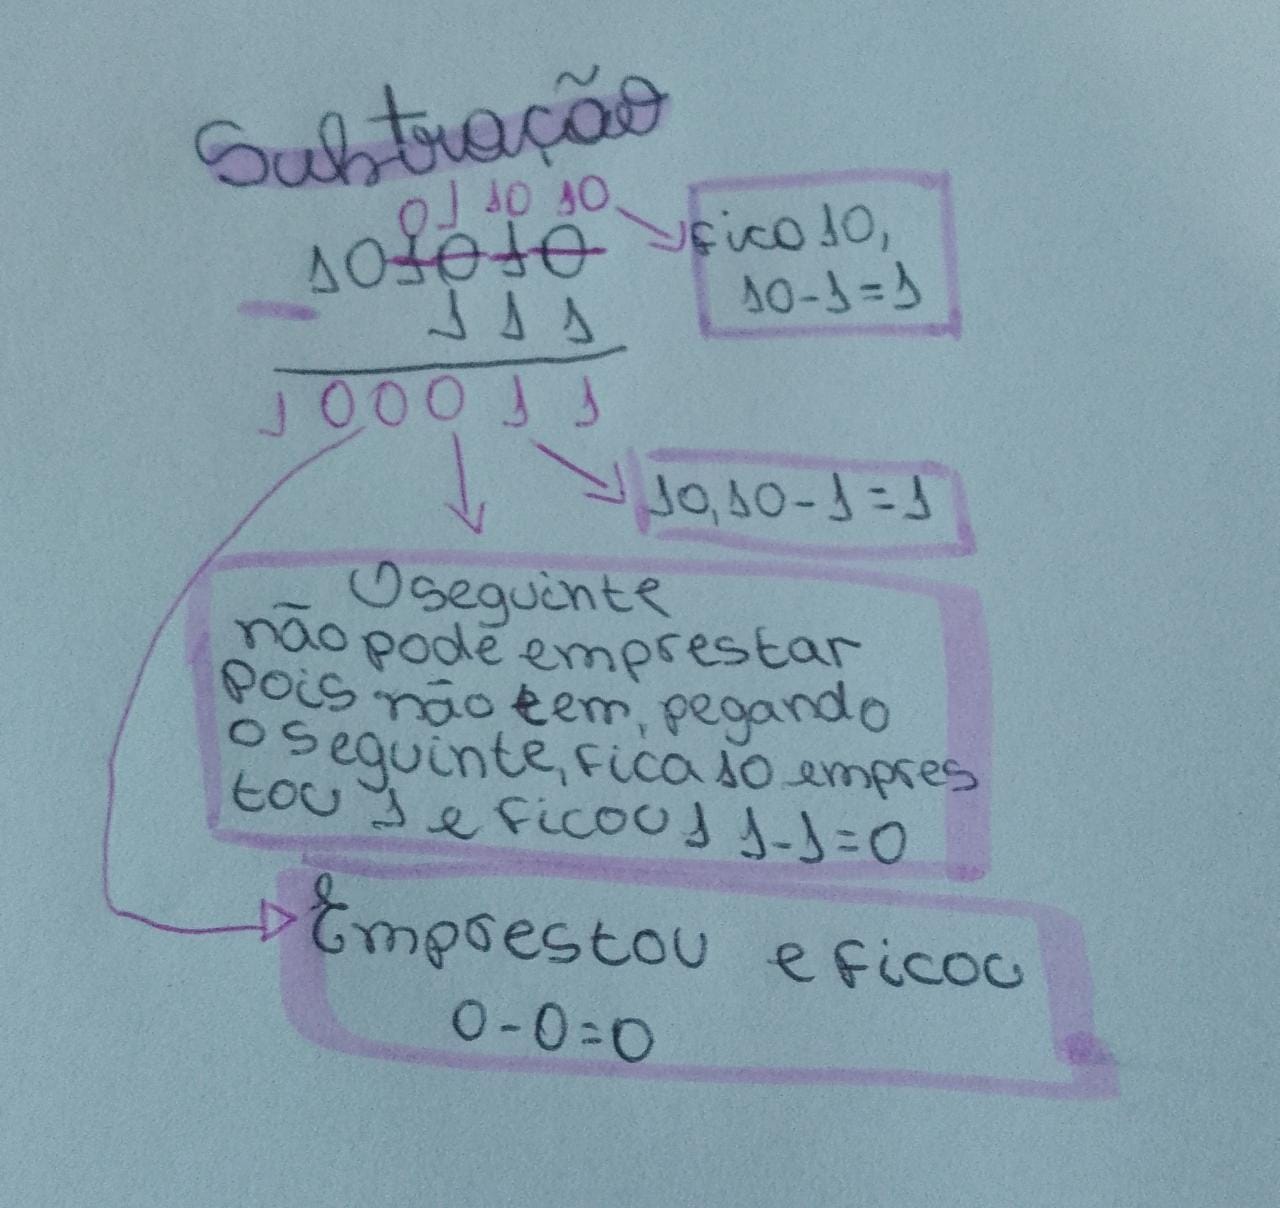 Subtração
0 1 10 10
101010
fico 10,
10-1=1
- 111
100011
10,10-1=1
O seguinte
não pode emprestar
Pois não tem, pegando
o seguinte, fica 10 empres
tou 1 e ficou 1 1-1=0
Emprestou e ficou
0-0=0